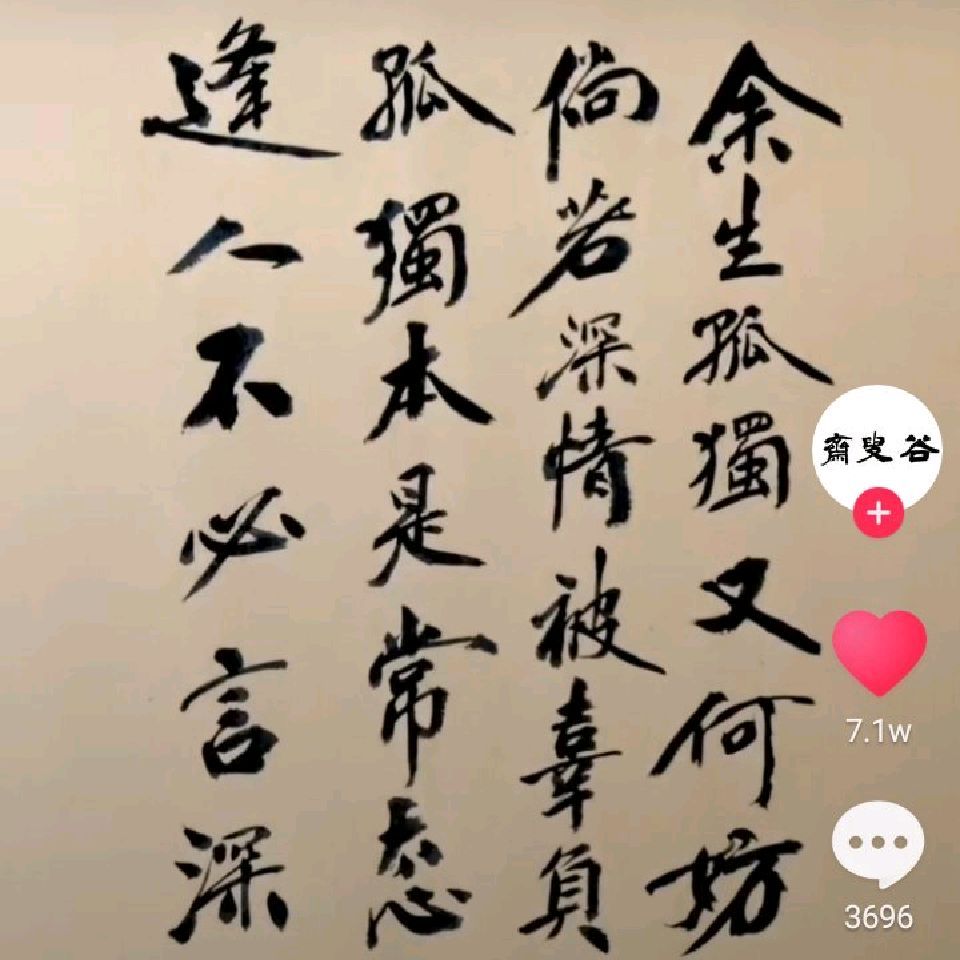 余生孤獨又何妨
倘若深情被辜負
孤獨本是常态
逢人不必言深
谷叟齋
7.1w
3696